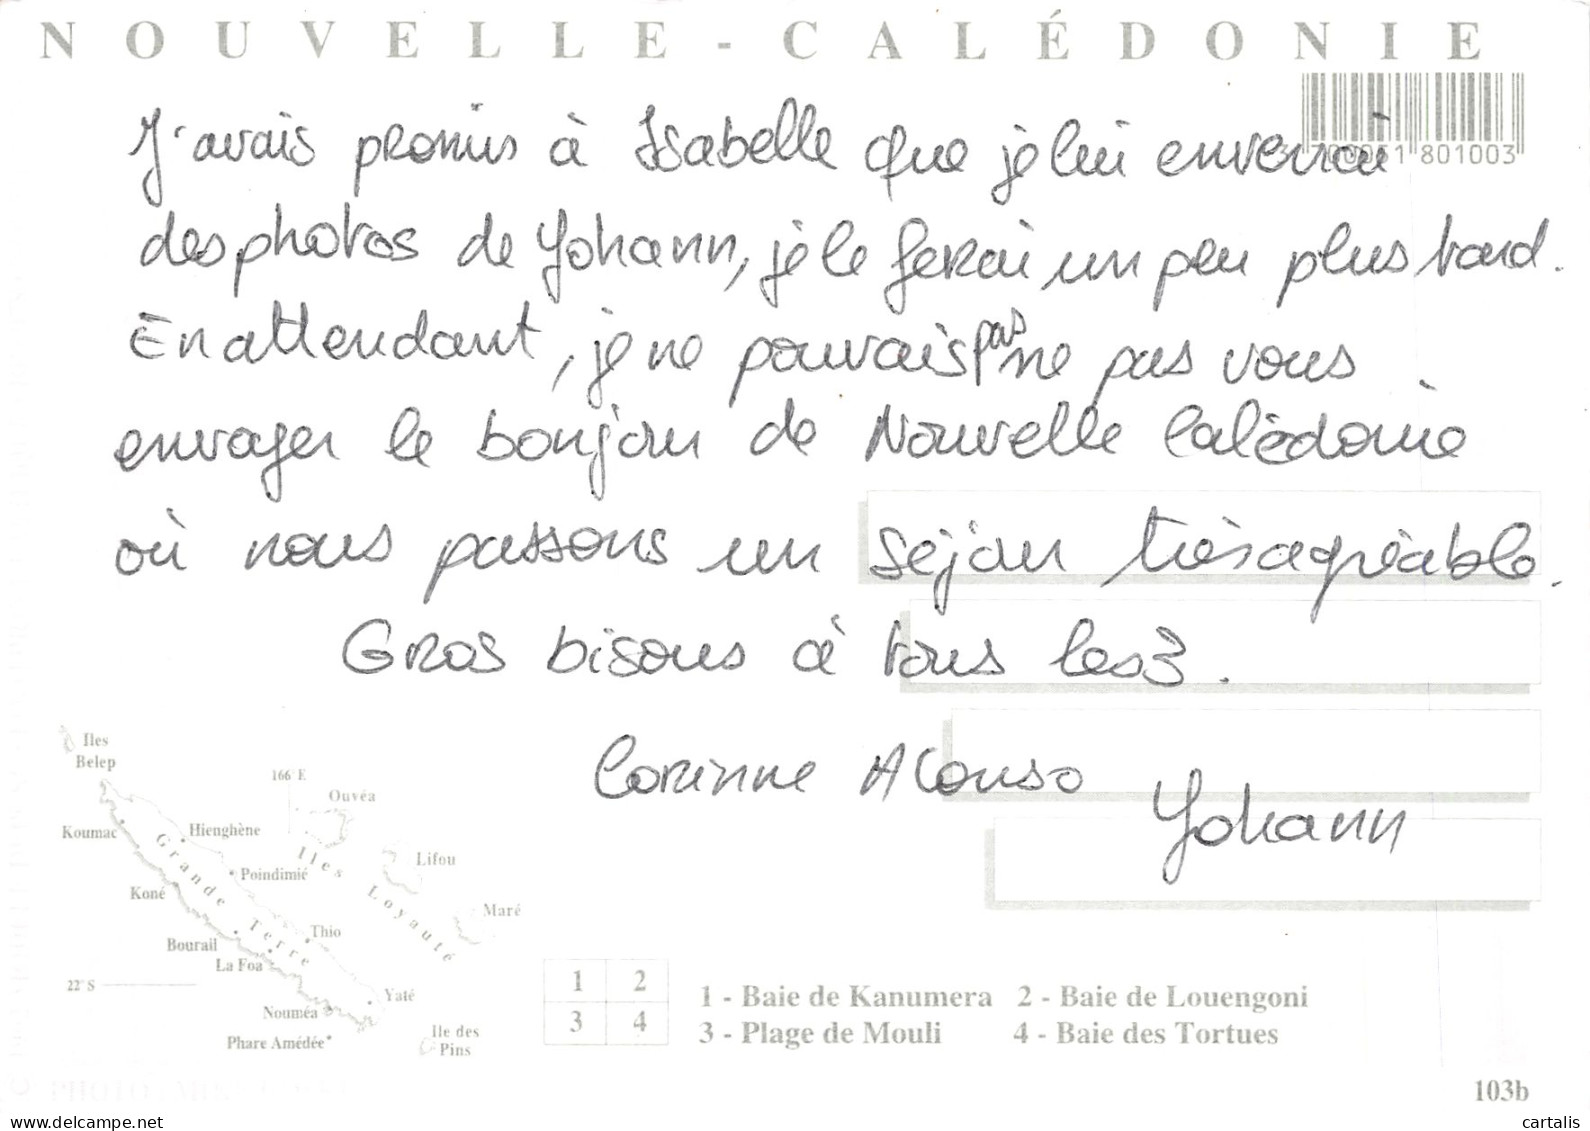 NOUVELLE-CALÉDONIE
J'avais promis à Isabelle que je lui enverrai
801003
des photos de Yohann, je le ferai un peu plus tard.
En attendant, je ne pouvais pas ne pas vous
envoyer le bonjour de Nouvelle Calédonie
où nous passons un séjour très agréable.
Gros bisous à tous les 3.
Corinne Alonso
Yohann
Iles
Belep
166°E
Ouvéa
Koumac
Hienghène
Grande Terre
Iles Loyauté
Lifou
Poindimié
Koné
Maré
Thio
Bourail
La Foa
22°S
Yaté
Nouméa
Phare Amédée
Ile des
Pins
1 2
3 4
1 - Baie de Kanumera 2 - Baie de Louengoni
3 - Plage de Mouli 4 - Baie des Tortues
103b
cartalis
www.delcampe.net